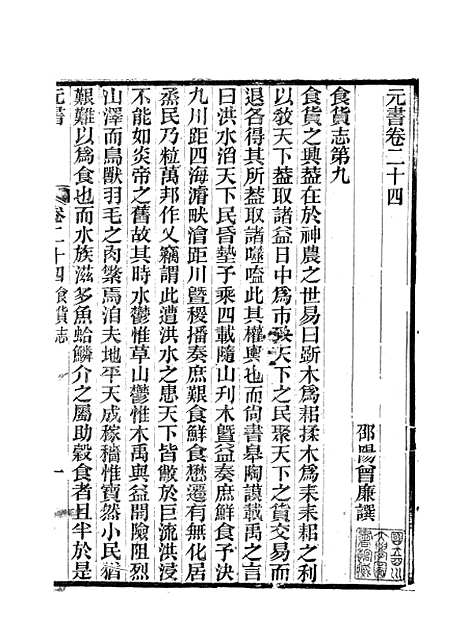 元書卷二十四
邵陽曾廉譔
食貨志第九
食貨之興蓋在於神農之世易曰斲木爲耜揉木爲耒耒耜之利
以敎天下蓋取諸益日中爲市致天下之民聚天下之貨交易而
退各得其所蓋取諸噬嗑此其權輿也而尙書皋陶謨載禹之言
曰洪水滔天下民昏墊予乘四載隨山刋木曁益奏庶鮮食予決
九川距四海濬畎澮距川曁稷播奏庶艱食鮮食懋遷有無化居
烝民乃粒萬邦作乂竊謂此遭洪水之患天下皆敝於巨流洪浸
不能如炎帝之舊故其時水鬱惟草山鬱惟木禹與益開險阻烈
山澤而鳥獸羽毛之肉縏焉洎夫地平天成稼穡惟寶然小民猶
艱難以爲食也而水族滋多魚蛤鱗介之屬助穀食者且半於是
元書
卷二十四食貨志
一